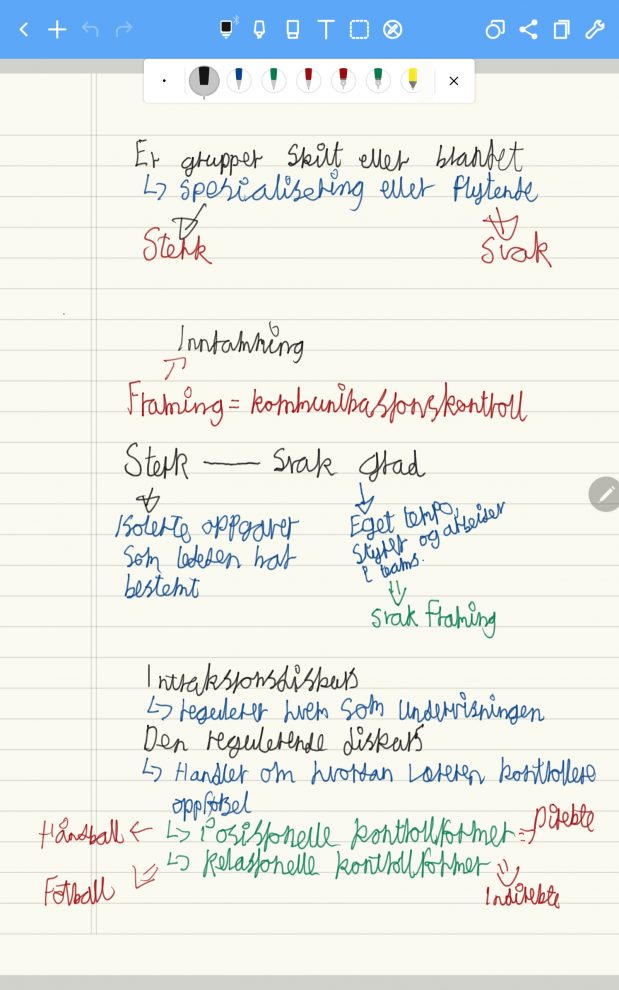 Er grupper skilt eller blandet
↳ spesialisering eller flytende
Sterk
Svak
Innramming
Framing = kommunikasjonskontroll
Sterk — Svak grad
Isolerte oppgaver
som lederen har
bestemt
Eget tempo,
styrer og arbeider
i teams.
svak framing
Intruksjonsdiskurs
↳ regulerer hvem som undervisningen
Den regulerende diskurs
↳ Handler om hvordan læreren kontrollere
oppførsel
Håndball ← ↳ Posisjonelle kontrollformer => Direkte
↳ Relasjonelle kontrollformer
Fotball
Indirekte